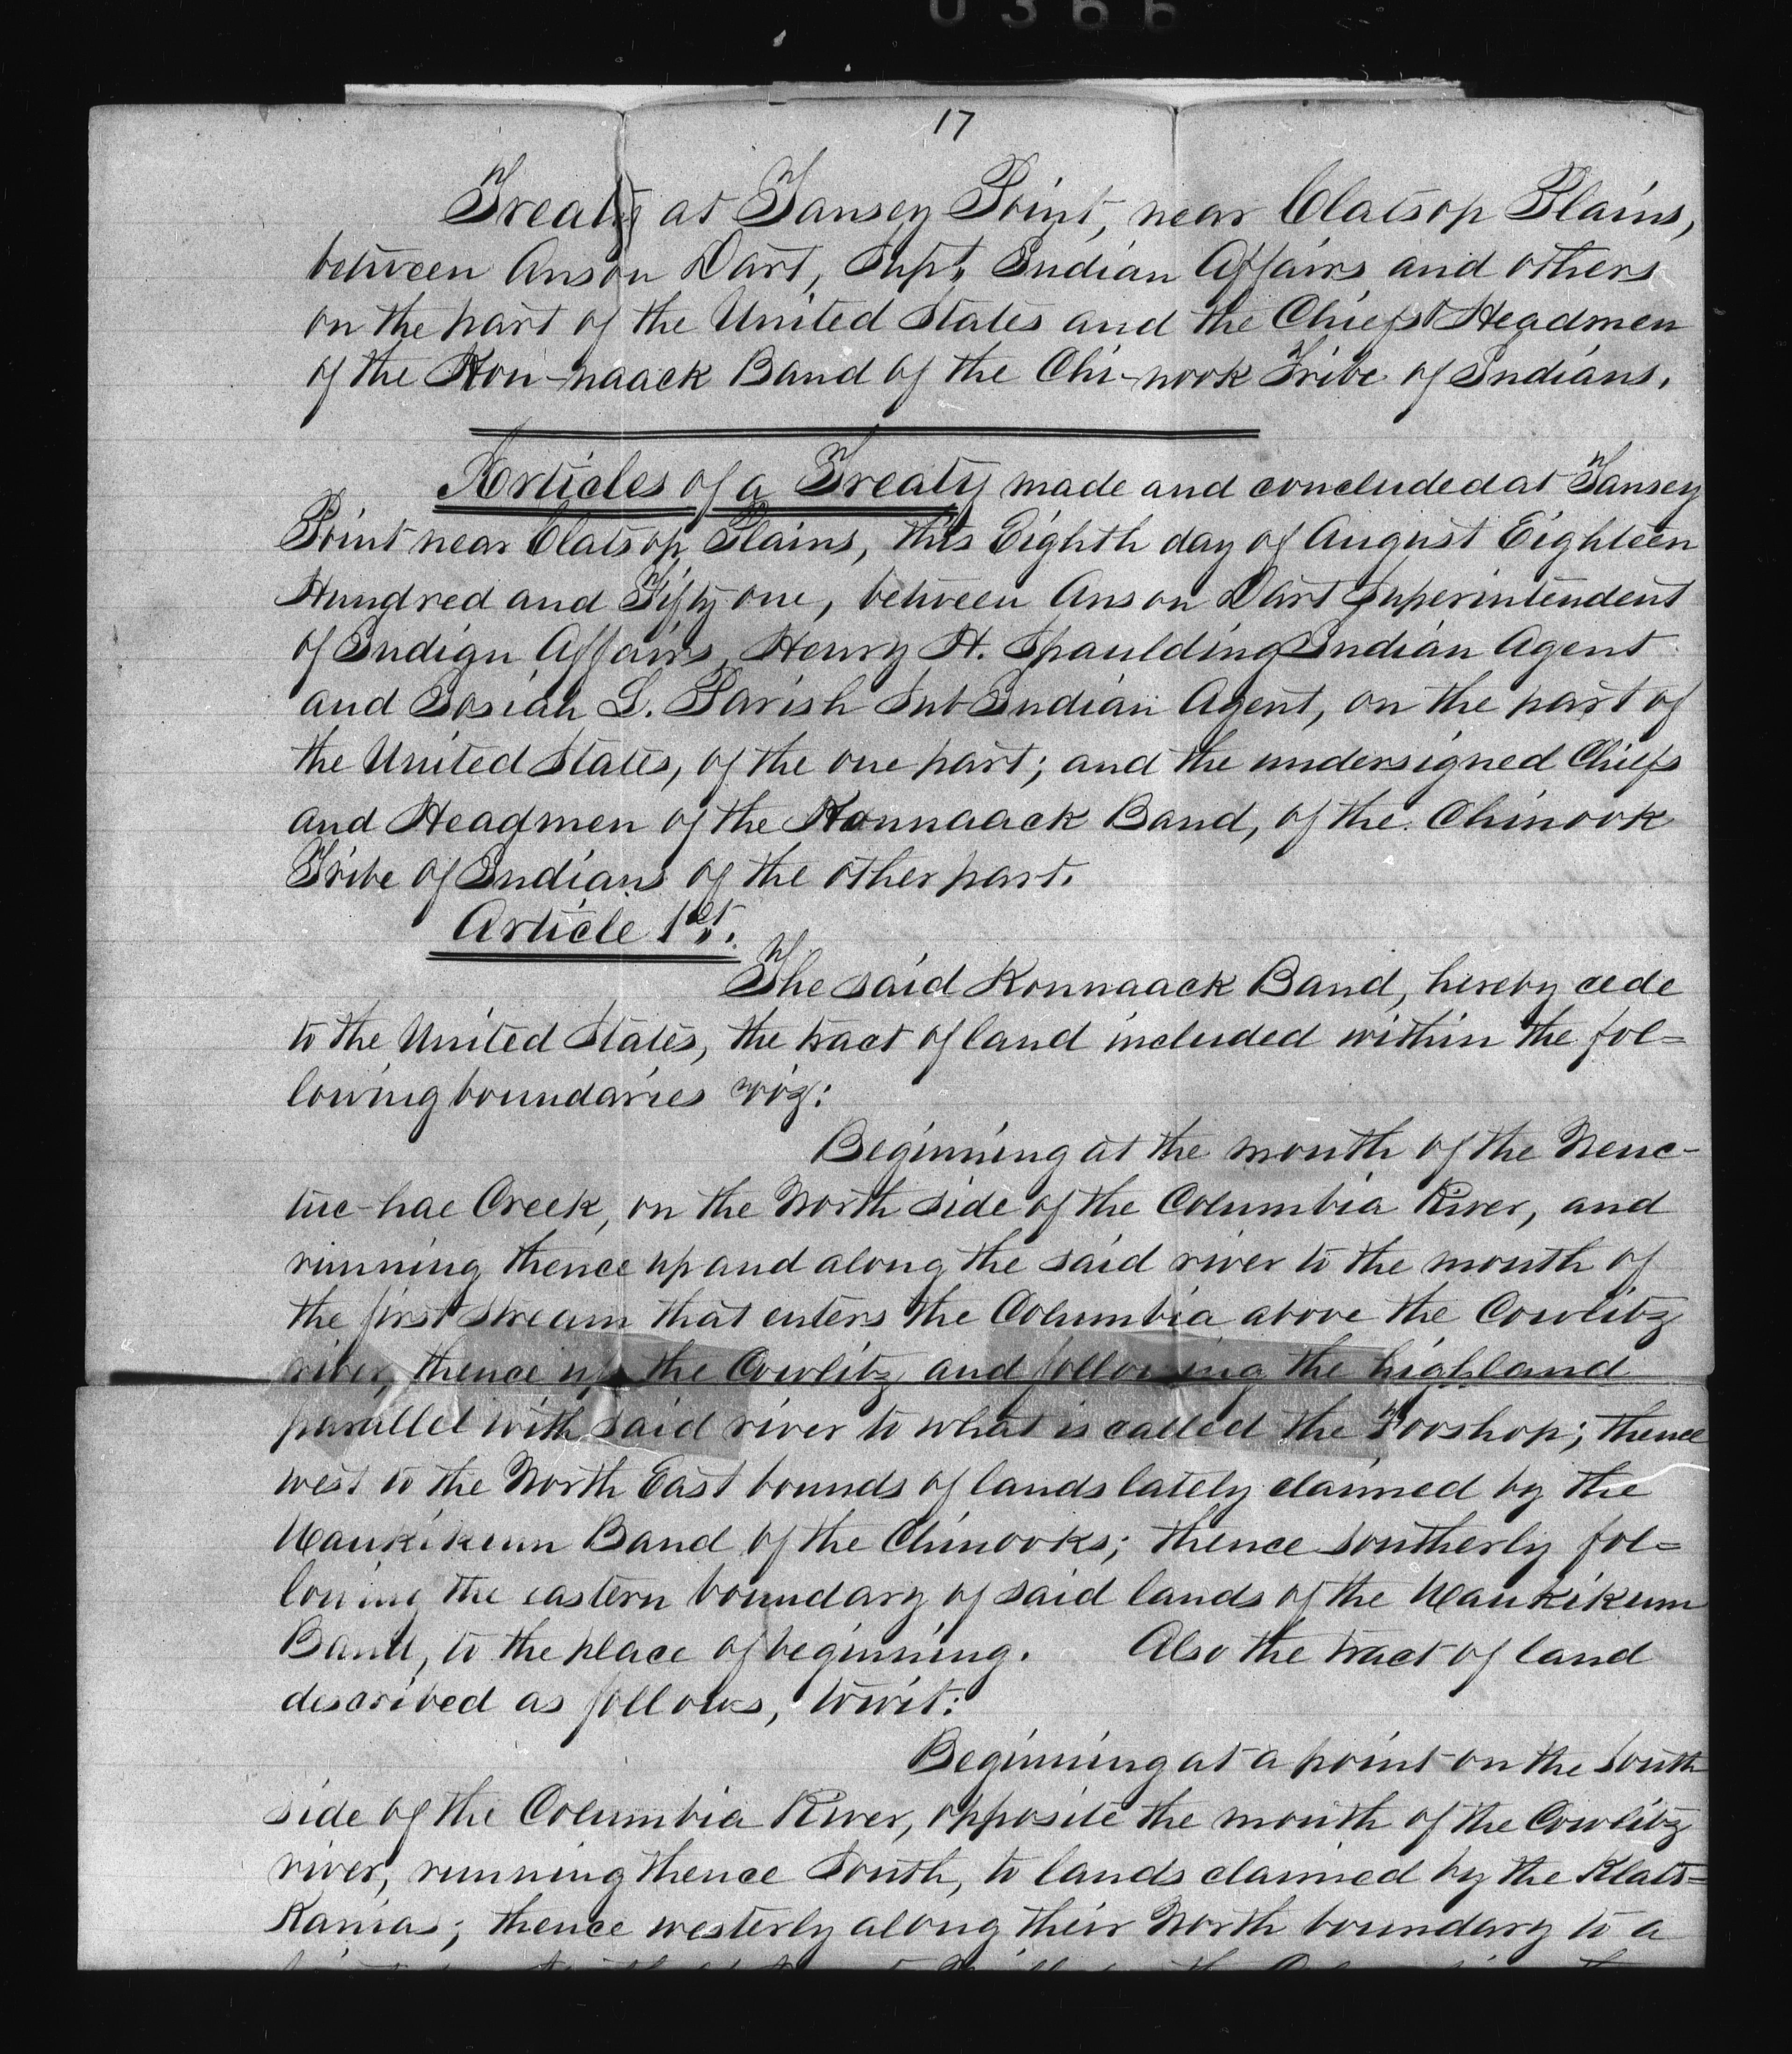 0366
17
Treaty at Tansey Point, near Clatsop Plains,
between Anson Dart, Supt. Indian Affairs and others
on the part of the United States and the Chiefs & Headmen
of the Kon-naack Band of the Chi-nook Tribe of Indians.
Articles of a Treaty made and concluded at Tansey
Point near Clatsop Plains, this Eighth day of August Eighteen
Hundred and Fifty one, between Anson Dart Superintendent
of Indian Affairs, Henry H. Spaulding Indian Agent
and Josiah L. Parish Sub Indian Agent, on the part of
the United States, of the one part; and the undersigned Chiefs
and Headmen of the Konnaack Band, of the Chinook
Tribe of Indians of the other part.
Article 1st.
The said Konnaack Band, hereby cede
to the United States, the tract of land included within the fol=
lowing boundaries viz:
Beginning at the mouth of the Neuc-
tuc-hae Creek, on the North side of the Columbia River, and
running thence up and along the said river to the mouth of
the first stream that enters the Columbia above the Cowlitz
river, thence up the Cowlitz and following the highland
parallel with said river to what is called the Forshop; thence
west to the North East bounds of lands lately claimed by the
Waukikum Band of the Chinooks; thence southerly fol=
lowing the eastern boundary of said lands of the Waukikum
Band, to the place of beginning. Also the tract of land
described as follows, towit:
Beginning at a point on the south
side of the Columbia River, opposite the mouth of the Cowlitz
river, running thence South, to lands claimed by the Klats=
Kanias; thence westerly along their North boundary to a